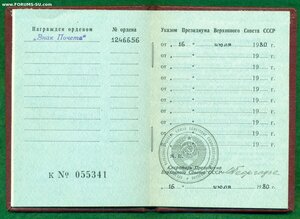 © www.FORUMS-SU.com
Награжден орденом
№ ордена
„Знак Почета“
1246656
К № 055341
Указом Президиума Верховного Совета СССР
от „ 16 “ июля 1980 г.
от „ “ 19 г.
от „ “ 19 г.
от „ “ 19 г.
от „ “ 19 г.
от „ “ 19 г.
от „ “ 19 г.
от „ “ 19 г.
М. П.
Секретарь Президиума
Верховного Совета СССР
„ 16 “ июля 1980 г.